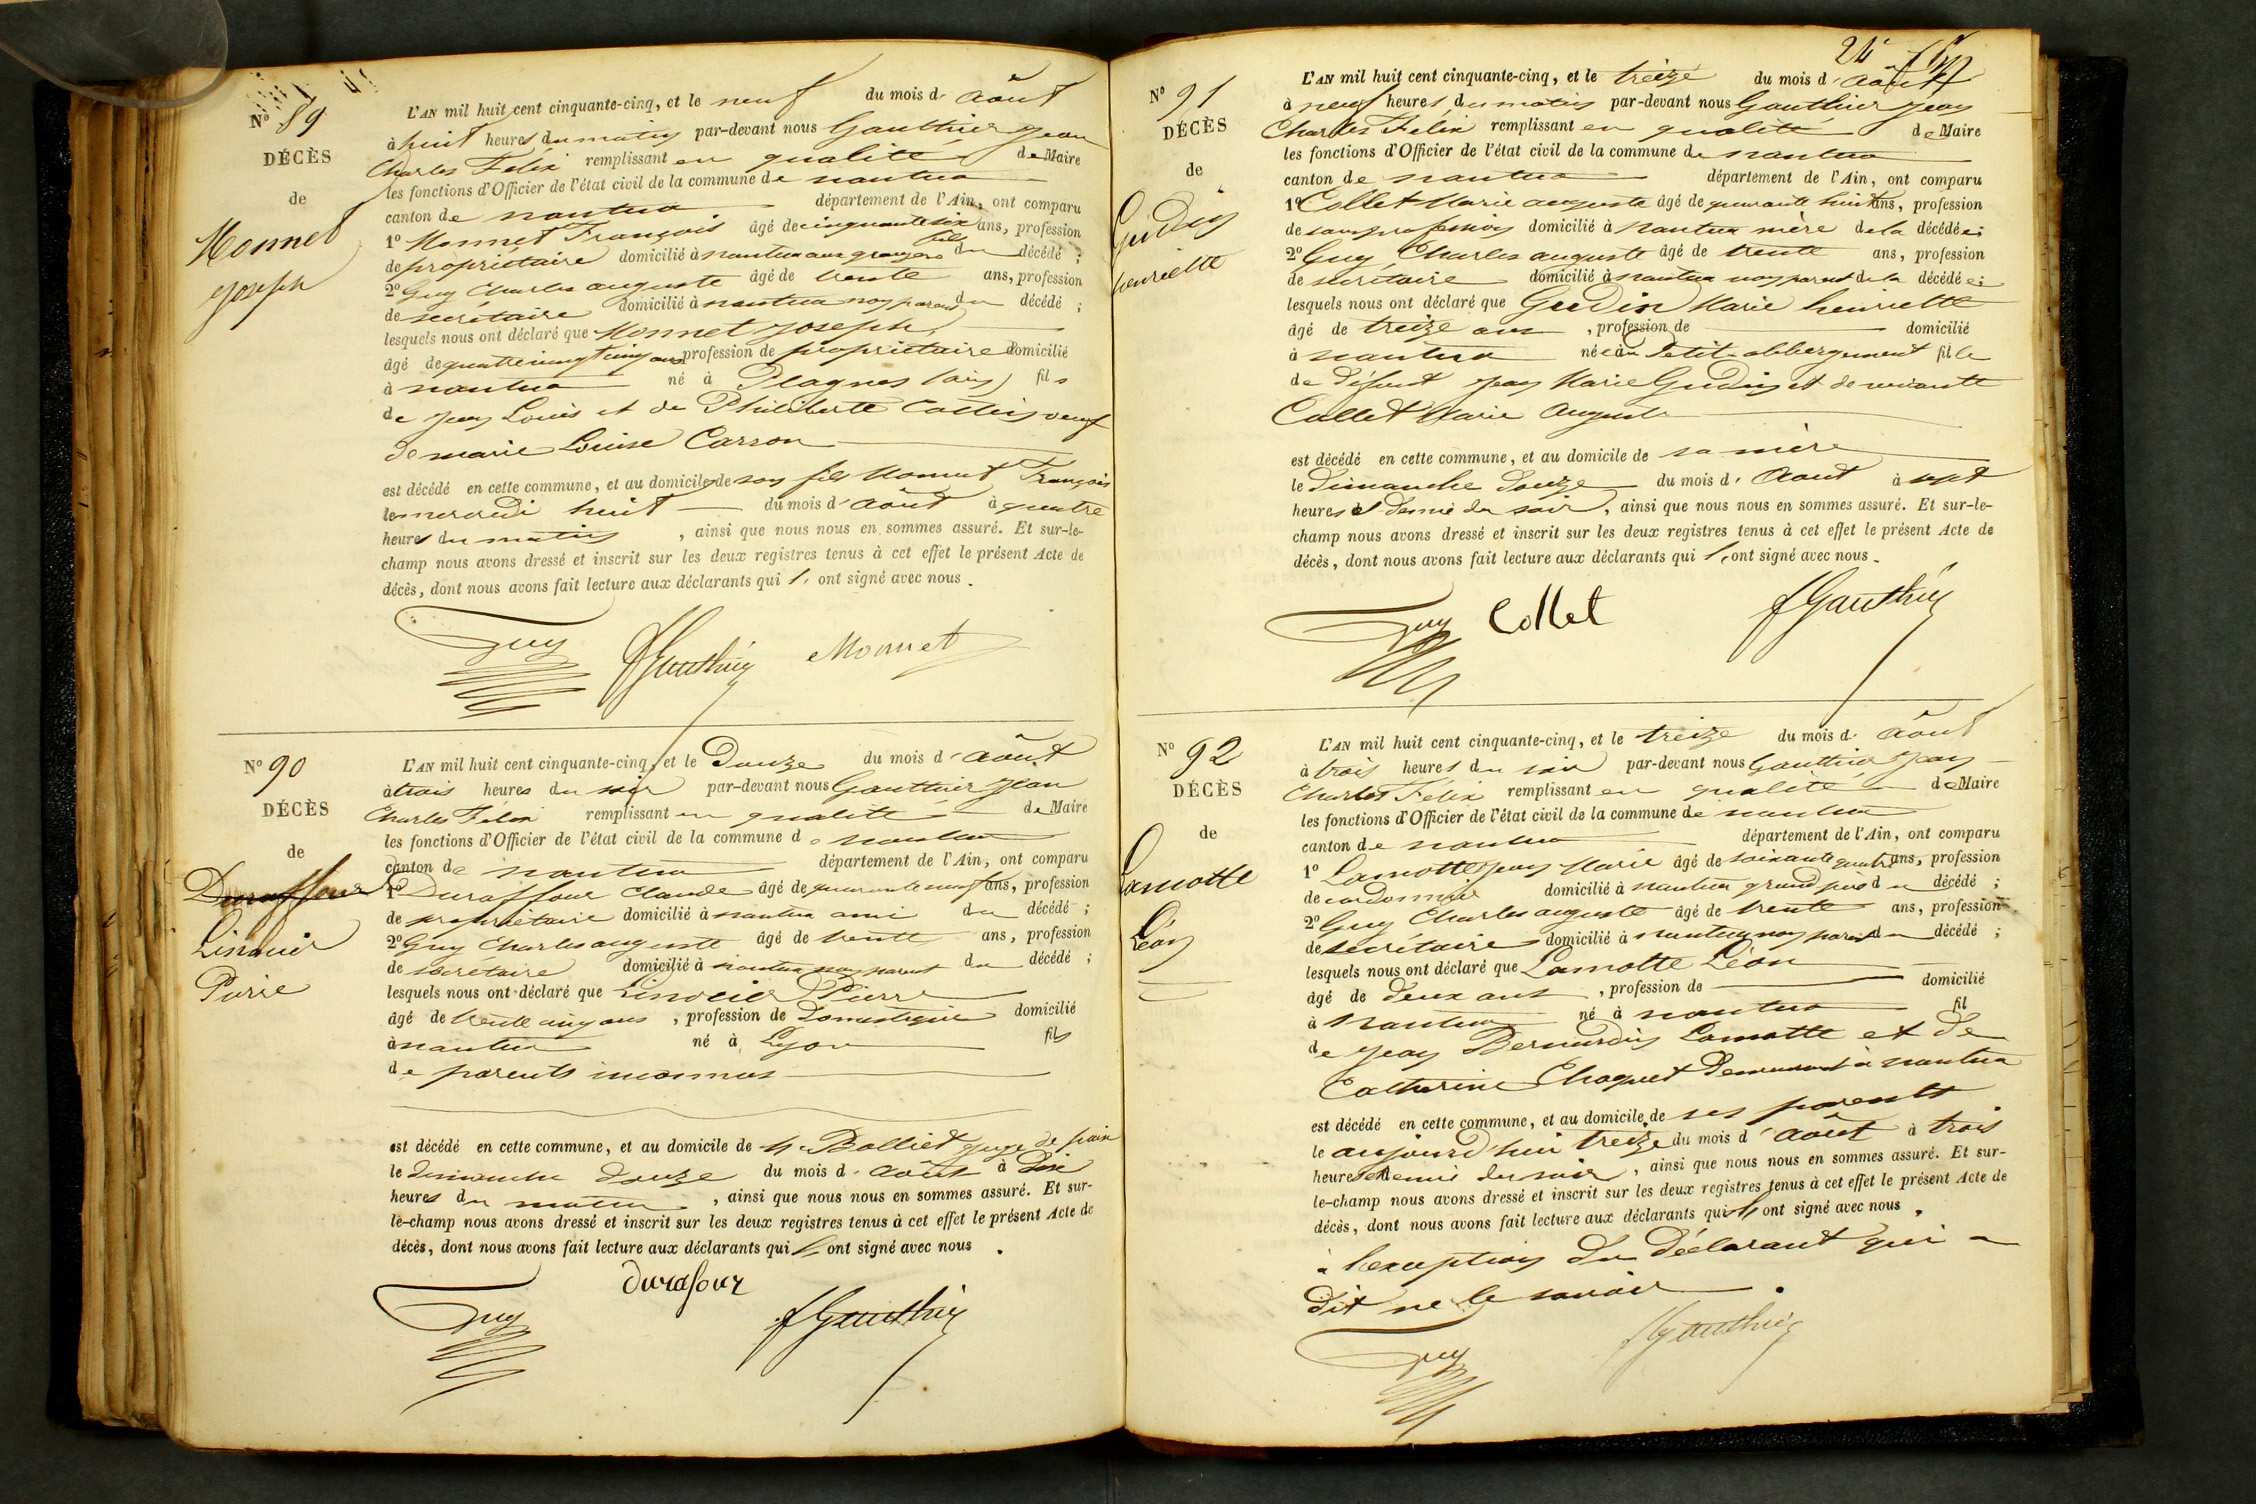 Nº 89
DÉCÈS
de
Monnet
Joseph
L'AN mil huit cent cinquante-cinq, et le neuf du mois d'Août
à huit heures du matin par-devant nous Gauthier Jean
Charles Félix remplissant en qualité de Maire
les fonctions d'Officier de l'état civil de la commune de nantua
canton de nantua département de l'Ain, ont comparu
1º Monnet François âgé de cinquante six ans, profession
de propriétaire domicilié à nantua aux granges fils du décédé ;
2º Guy Charles auguste âgé de trente ans, profession
de secrétaire domicilié à nantua non parent du décédé ;
lesquels nous ont déclaré que Monnet Joseph
âgé de quatrevingt cinq ans profession de propriétaire domicilié
à nantua né à Plagnes (ain) fils
de Jean Louis et de Philiberte Cottin veuf
de marie Louise Carron
est décédé en cette commune, et au domicile de son fils Monnet François
le mercredi huit du mois d'août à quatre
heures du matin, ainsi que nous nous en sommes assuré. Et sur-le-
champ nous avons dressé et inscrit sur les deux registres tenus à cet effet le présent Acte de
décès, dont nous avons fait lecture aux déclarants qui l'ont signé avec nous.
Guy fGauthier Monnet
Nº 90
DÉCÈS
de
Duraffour
Linossier
Pierre
L'AN mil huit cent cinquante-cinq, et le Douze du mois d'août
à trois heures du soir par-devant nous Gauthier Jean
Charles Félix remplissant en qualité de Maire
les fonctions d'Officier de l'état civil de la commune de nantua
canton de nantua département de l'Ain, ont comparu
1º Duraffour Claude âgé de quarante neuf ans, profession
de propriétaire domicilié à nantua ami du décédé ;
2º Guy Charles auguste âgé de trente ans, profession
de secrétaire domicilié à nantua non parent du décédé ;
lesquels nous ont déclaré que Pierre
âgé de trente cinq ans, profession de Domestique domicilié
à nantua né à Lyon fils
de parents inconnus
est décédé en cette commune, et au domicile de Mr Balliet juge de paix
le dimanche douze du mois d'août à Dix
heures du matin, ainsi que nous nous en sommes assuré. Et sur-
le-champ nous avons dressé et inscrit sur les deux registres tenus à cet effet le présent Acte de
décès, dont nous avons fait lecture aux déclarants qui l'ont signé avec nous.
durafour
Guy fGauthier
24
Nº 91
DÉCÈS
de
Gudin
henriette
L'AN mil huit cent cinquante-cinq, et le treize du mois d'août
à neuf heures du matin par-devant nous Gauthier Jean
Charles Félix remplissant en qualité de Maire
les fonctions d'Officier de l'état civil de la commune de nantua
canton de nantua département de l'Ain, ont comparu
1º Collet Marie auguste âgé de quarante huit ans, profession
de sans profession domicilié à nantua mère de la décédée ;
2º Guy Charles auguste âgé de trente ans, profession
de secrétaire domicilié à nantua non parent de la décédée ;
lesquels nous ont déclaré que Gudin Marie henriette
âgé de treize ans, profession de domicilié
à nantua née au Petit-abbergement fille
de défunt Jean Marie Gudin et de vivante
Collet Marie Auguste
est décédé en cette commune, et au domicile de sa mère
le Dimanche douze du mois d'Aout à sept
heures et demie du soir, ainsi que nous nous en sommes assuré. Et sur-le-
champ nous avons dressé et inscrit sur les deux registres tenus à cet effet le présent Acte de
décès, dont nous avons fait lecture aux déclarants qui l'ont signé avec nous.
Guy Collet fGauthier
Nº 92
DÉCÈS
de
Lamotte
Léon
L'AN mil huit cent cinquante-cinq, et le treize du mois d'Août
à trois heures du soir par-devant nous Gauthier Jean
Charles Félix remplissant en qualité de Maire
les fonctions d'Officier de l'état civil de la commune de nantua
canton de nantua département de l'Ain, ont comparu
1º Lamotte Jean Marie âgé de soixante quatre ans, profession
de cordonnier domicilié à nantua grand père du décédé ;
2º Guy Charles auguste âgé de trente ans, profession
de secrétaire domicilié à nantua non parent du décédé ;
lesquels nous ont déclaré que Lamotte Léon
âgé de deux ans, profession de domicilié
à Nantua né à nantua fil
de Jean Bernardin Lamotte et de
Catherine Chaquet demeurant à nantua
est décédé en cette commune, et au domicile de ses parents
le aujourd'hui treize du mois d'août à trois
heures et demie du soir, ainsi que nous nous en sommes assuré. Et sur-
le-champ nous avons dressé et inscrit sur les deux registres tenus à cet effet le présent Acte de
décès, dont nous avons fait lecture aux déclarants qui l'ont signé avec nous,
à l'exception du Déclarant qui a
dit ne le savoir.
Guy fGauthier